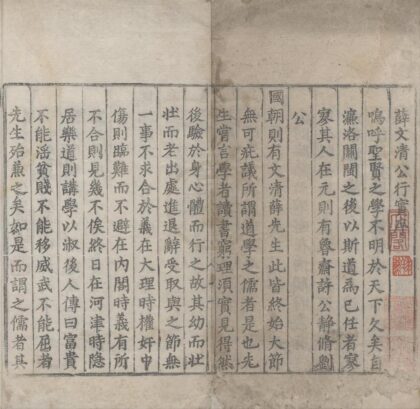 薛文清公行實序
嗚呼聖賢之學不明於天下久矣自
濂洛關閩之後以斯道爲已任者寥
寥其人在元則有魯齋許公靜脩劉
公
國朝則有文清薛先生此皆終始大節
無可疵議所謂道學之儒者是也先
生甞言學者讀書窮理須實見得然
後驗於身心體而行之故其幼而壯
壯而老出處進退辭受取與之節無
一事不求合於義在大理時權奸中
傷則臨難而不避在内閣時義有所
不合則見幾不俟終日在河津時隐
居樂道則講學以淑後人傳曰富貴
不能淫貧賤不能移威武不能屈者
先生殆兼之矣如是而謂之儒者其